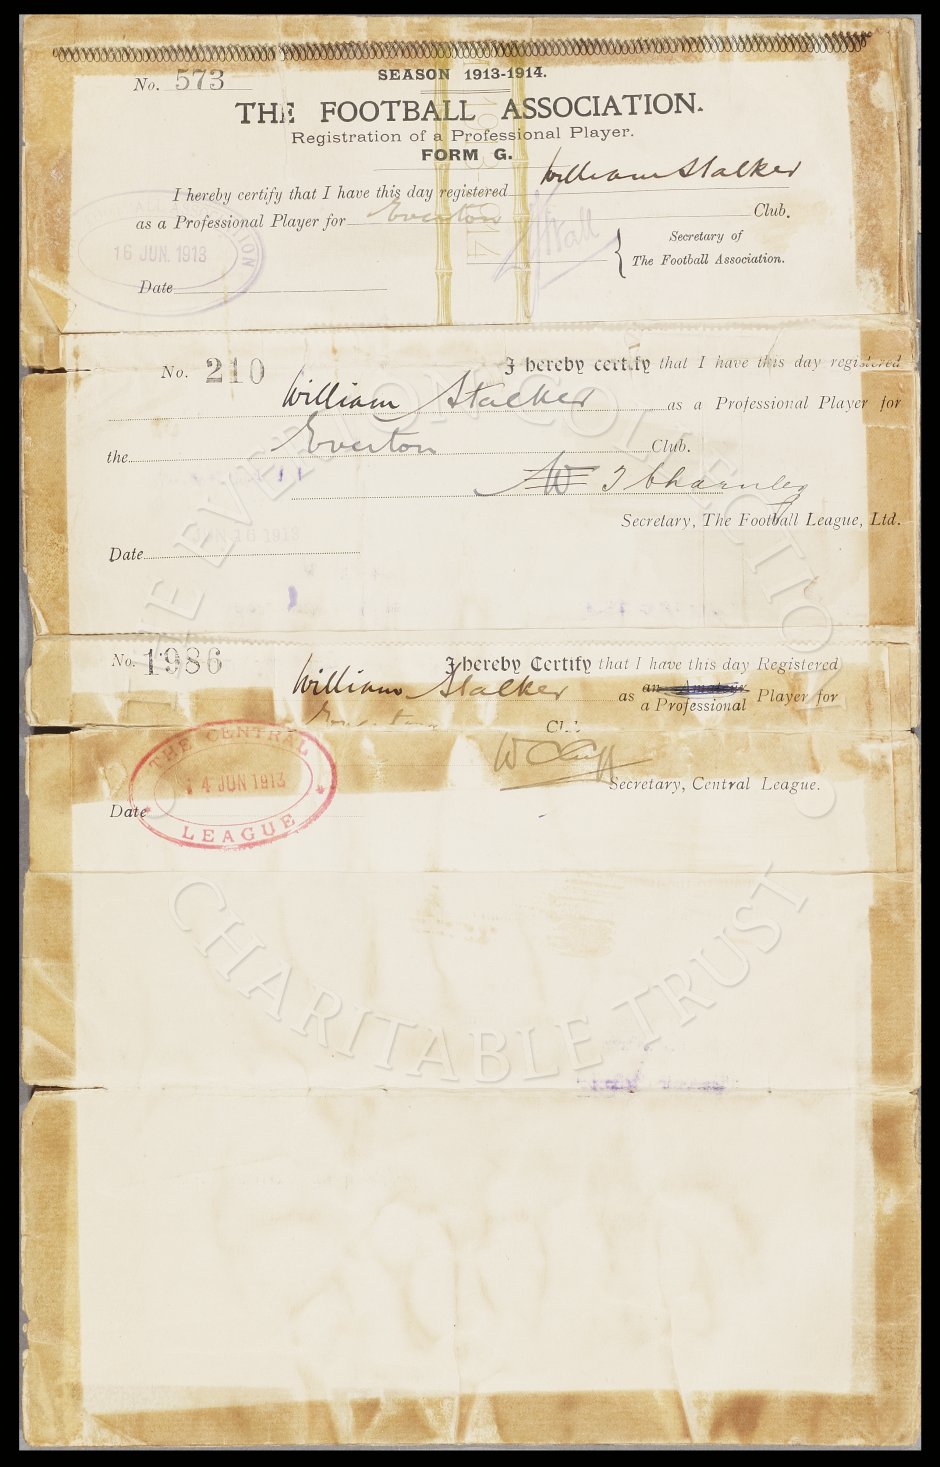 SEASON 1913-1914.
No. 573
THE FOOTBALL ASSOCIATION.
Registration of a Professional Player.
FORM G.
I hereby certify that I have this day registered William Stalker
as a Professional Player for Everton Club.
Secretary of
The Football Association.
16 JUN. 1913
Date
No. 210 I hereby certify that I have this day registered
William Stalker as a Professional Player for
the Everton Club.
Charnley
Secretary, The Football League, Ltd.
JUN 16 1913
Date
No. 1986 I hereby Certify that I have this day Registered
William Stalker as an Amateur Player for
a Professional
Everton Club
Secretary, Central League.
THE CENTRAL
14 JUN 1913
LEAGUE
Date
EVERTON COLLECTION
CHARITABLE TRUST